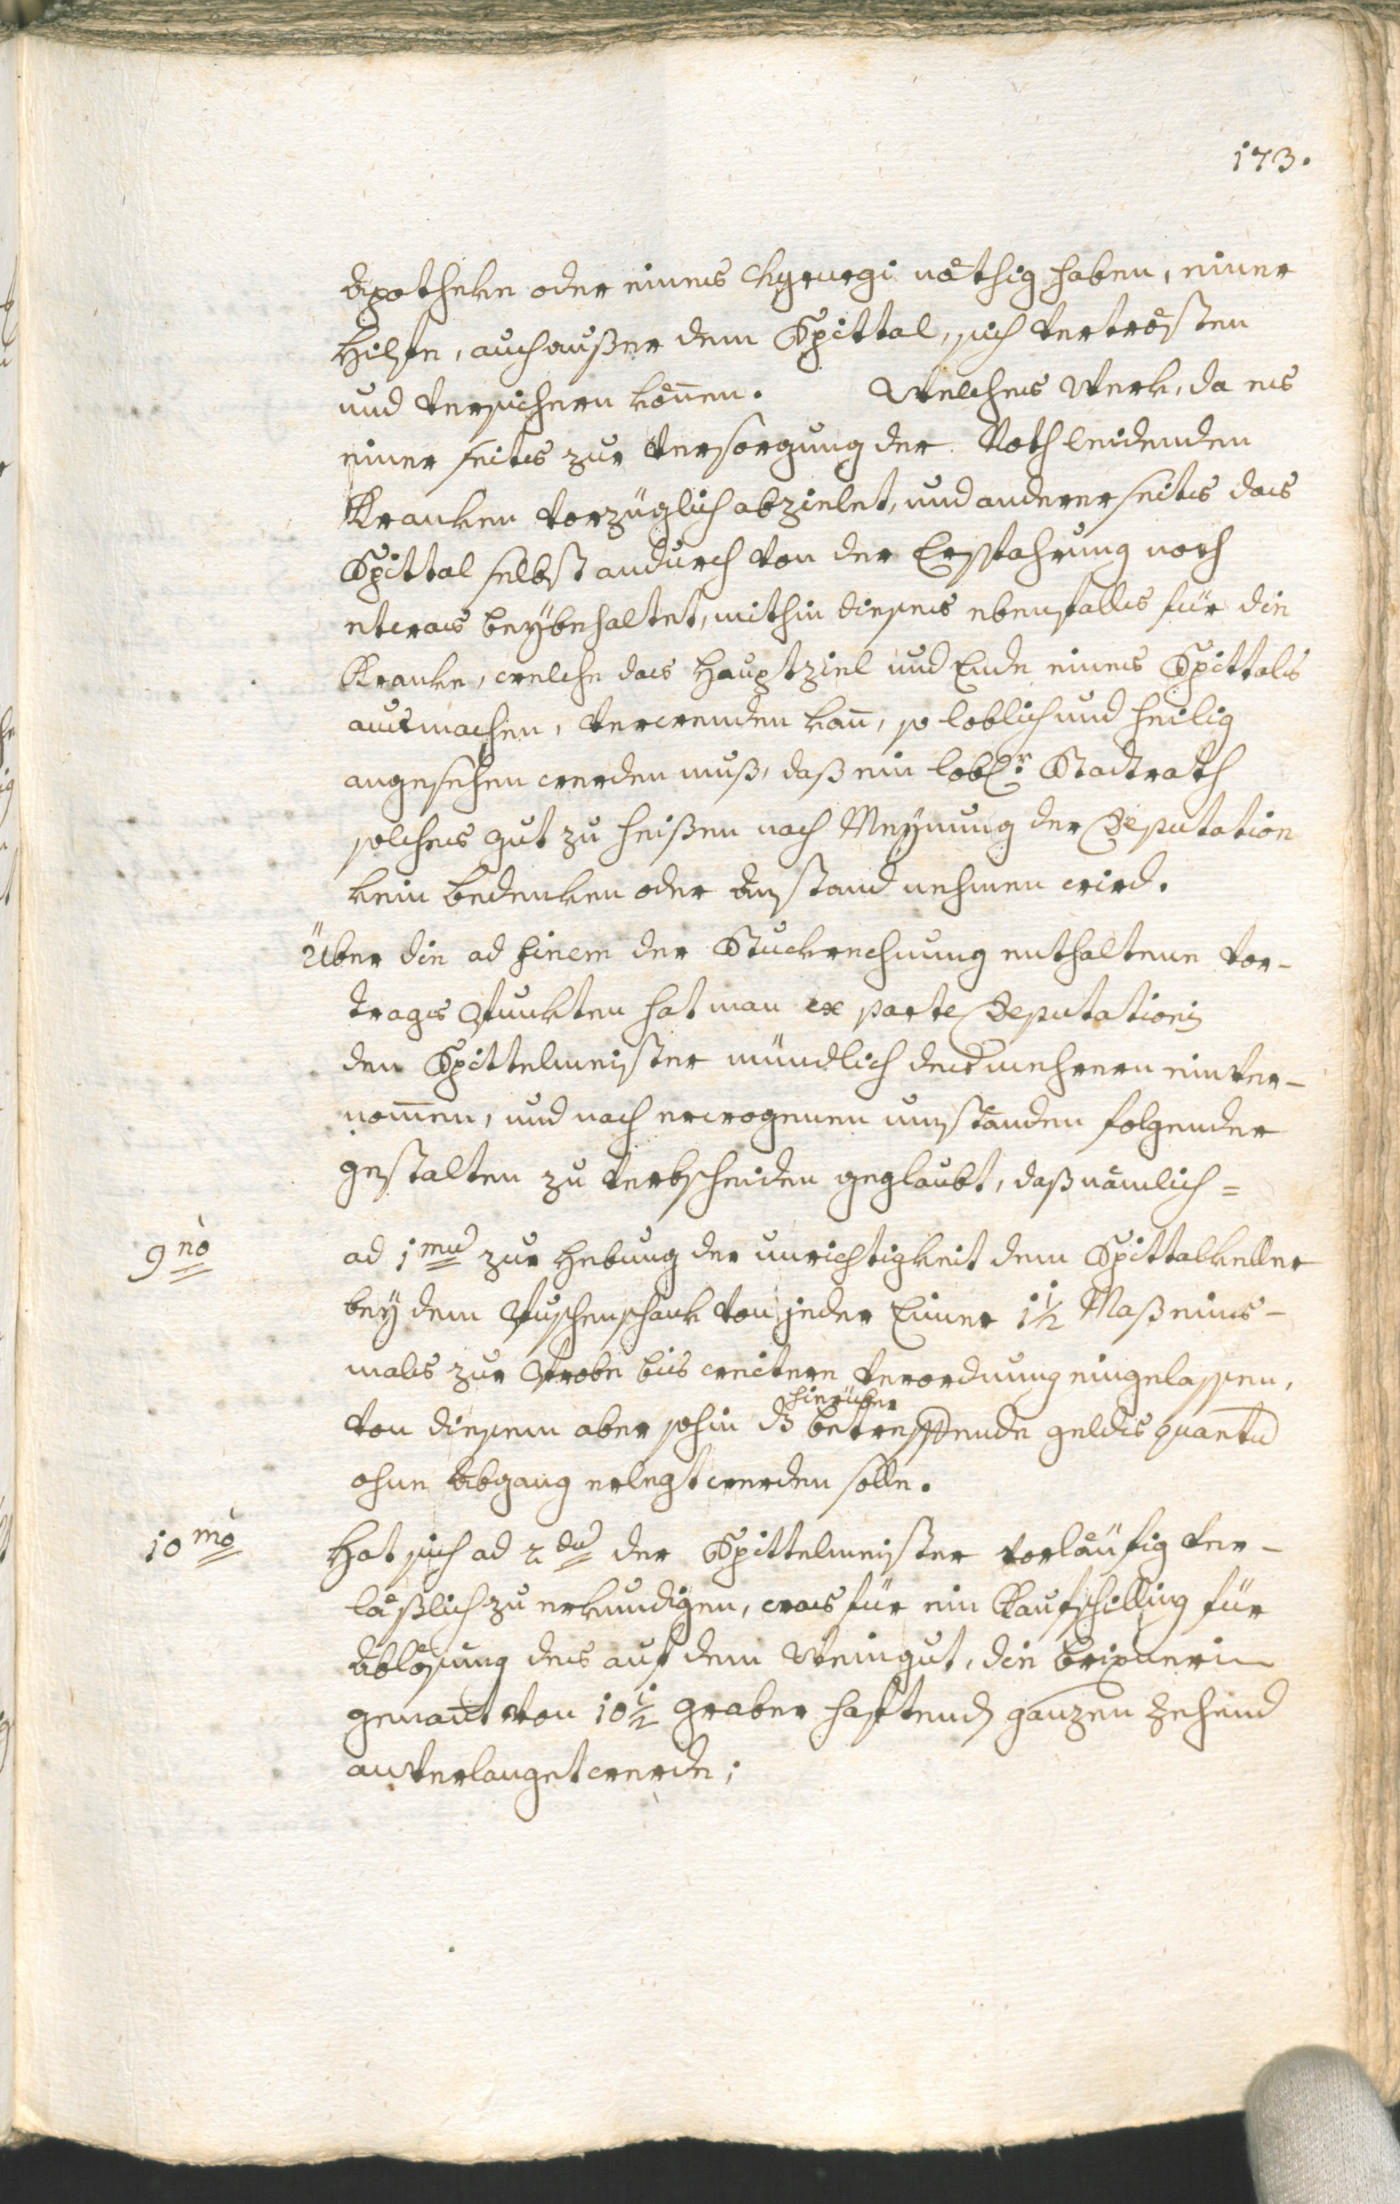 173.
Apotheke oder eines Chyrurgi nöthig haben, einer
Hilfe, auch außer dem Spittal, sich vertrösten
und versichern können. Welches Werk, da es
einer seits zur Versorgung der Nothleidenden
Kranken vorzüglich abzielet, und anderer seits das
Spittal selbst andurch von der Ersparung noch
etwas beybehaltet, mithin dieses ebenfalls für die
Kranke, welche das Hauptziel und Ende eines Spittals
ausmachen, verwenden kan, so loblich und heilig
angesehen werden muß, daß ein lobl.r Stadtrath
solches gut zu heißen nach Meynung der Deputation
kein bedenken oder Anstand nehmen wird.
Über die ad finem der Stuckrechnung enthaltene Vor-
trags Punkten hat man ex parte Deputationis
den Spittelmeister mündlich des mehrern einver-
nommen, und nach erwogenen umständen folgender
gestalten zu verbscheiden geglaubt, daß nämlich =
9nò ad 1mu zur Hebung der unrichtigkeit dem Spittalkeller
bey dem Puschenschank von jeder Eimer 1½ Maß eins-
mals zur Probe bis weitere Verordnung eingelassen,
hierüber
von diesem aber sohin dz betreffende gelds quantu
ohne Abgang erlegt werden solle.
10mò Hat sich ad 2du der Spittelmeister vorläufig ver-
läßlich zu erkundigen, was für ein Kaufschilling für
Ablösung des auf dem Weingut, die Brixnerin
genant von 10½ graber haftend ganzen Zehend
anverlanget werde;